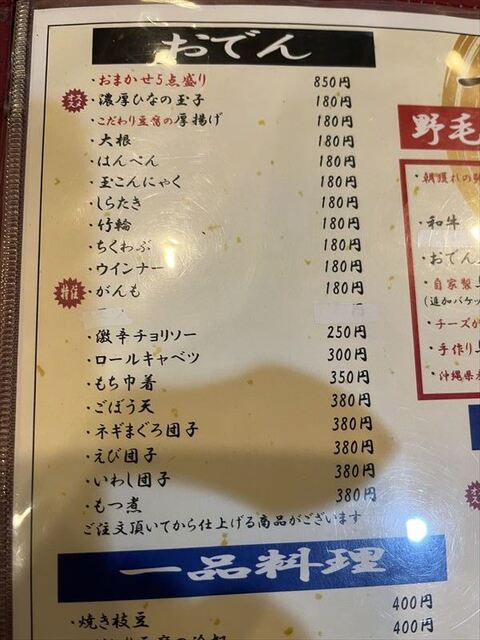 おでん
・おまかせ5点盛り 850円
・濃厚ひなの玉子 180円
・こだわり豆腐の厚揚げ 180円
・大根 180円
・はんぺん 180円
・玉こんにゃく 180円
・しらたき 180円
・竹輪 180円
・ちくわぶ 180円
・ウインナー 180円
・がんも 180円
・激辛チョリソー 250円
・ロールキャベツ 300円
・もち巾着 350円
・ごぼう天 380円
・ネギまぐろ団子 380円
・えび団子 380円
・いわし団子 380円
・もつ煮 380円
ご注文頂いてから仕上げる商品がございます
一品料理
・焼き枝豆 400円
400円
野毛
・朝獲れの
・和牛
・おでん
・自家製
(追加バケッ
・チーズが
・手作り
・沖縄県